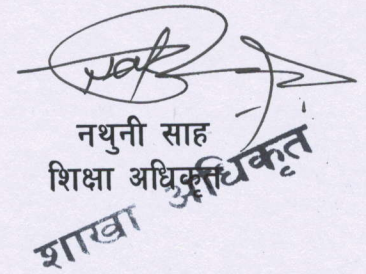 नथुनी साह
शिक्षा अधिकृत
शाखा अधिकृत